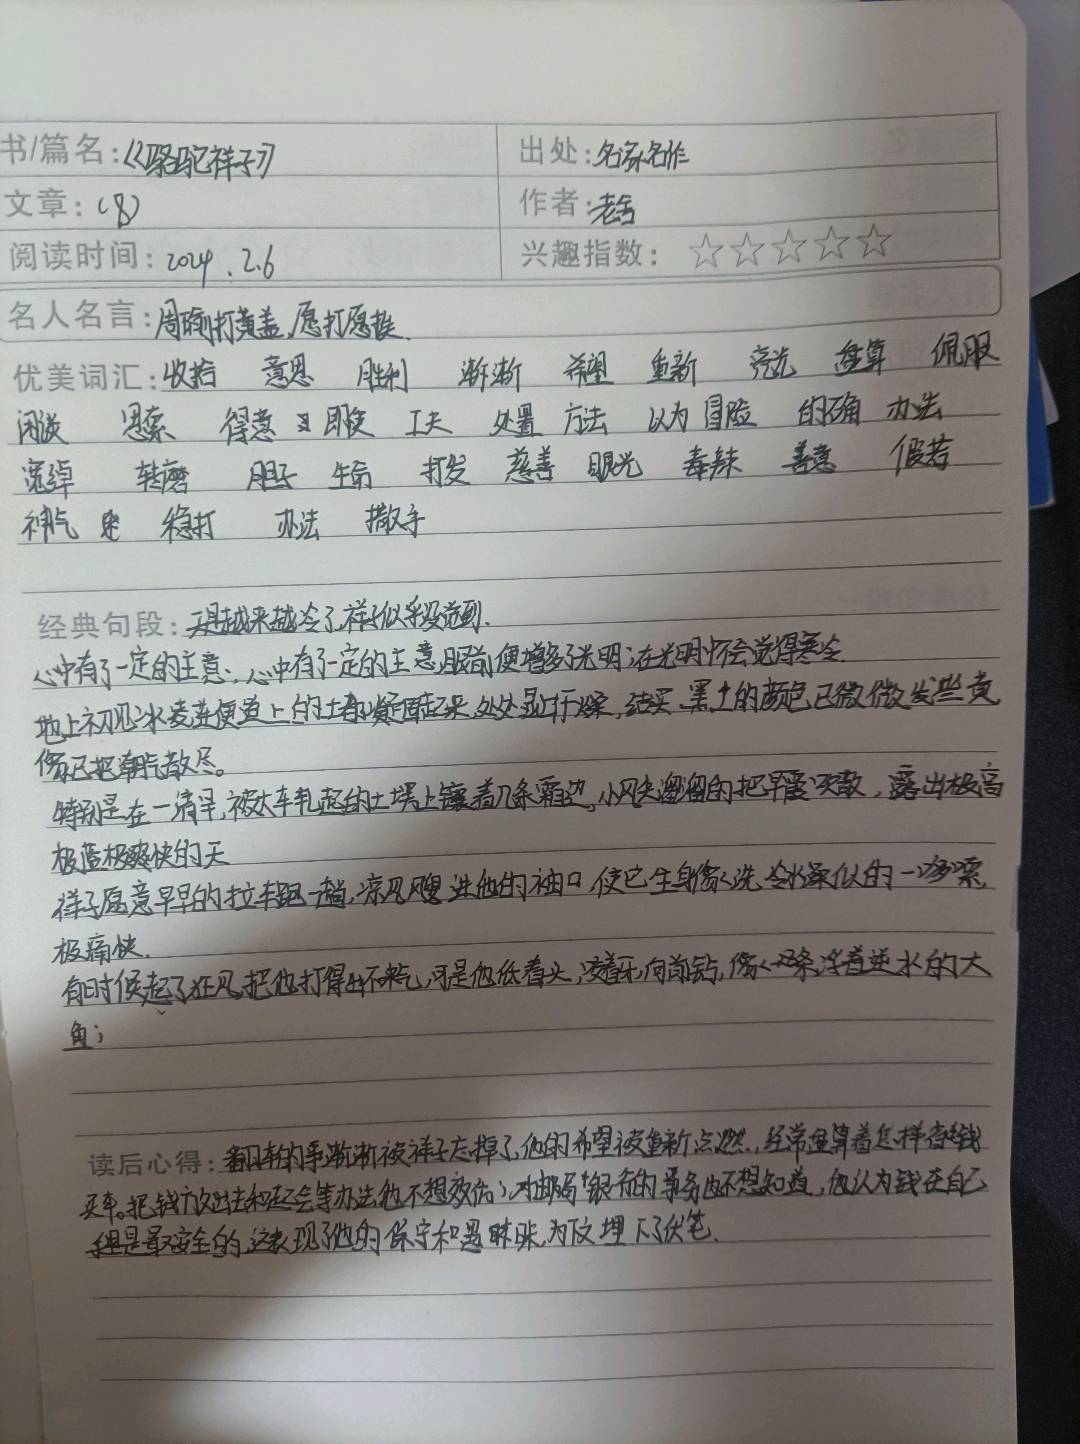 书/篇名：《骆驼祥子》 出处：名家名作
文章：（8） 作者：老舍
阅读时间：2024.2.6 兴趣指数：☆☆☆☆☆
名人名言：周瑜打黄盖，愿打愿挨.
优美词汇：收拾 意思 胜利 渐渐 希望 重新 亮光 盘算 佩服
闲谈 思索 得意 眼 工夫 处置 方法 以为 冒险 的确 办法
宽绰 转磨 胆子 生命 打发 慈善 眼光 毒辣 善意 假若
神气 稳打 办法 撒手
经典句段：天是越来越冷了，祥子似乎没觉到.
心中有了一定的主意；心中有了一定的主意，眼前便增多了光明；在光明中不会觉得寒冷.
地上初见冰凌，连便道上的土都凝固起来，处处显出干燥，结实，黑土的颜色已微微发些黄
像已把潮气散尽。
特别是在一清早，被大车轧起的土埂上镶着几条霜边，小风尖溜溜的把早霞吹散，露出极高
极蓝极爽快的天
祥子愿意早早的拉车跑一趟，凉风飕进他的袖口，使它全身像洗冷水澡似的一哆嗦，
极痛快.
有时候起了狂风，把他打得出不来气，可是他低着头，咬着牙，向前钻，像一条浮着逆水的大
鱼；
读后心得：的事渐渐被祥子忘掉了，他的希望被重新点燃，经常盘算着怎样省钱
买车。把钱放出去和起会等办法他不想效仿，对邮局、银行的事务也不想知道，他认为钱在自己
手里是最安全的，这表现了他的保守和愚昧，为下文埋下了伏笔.